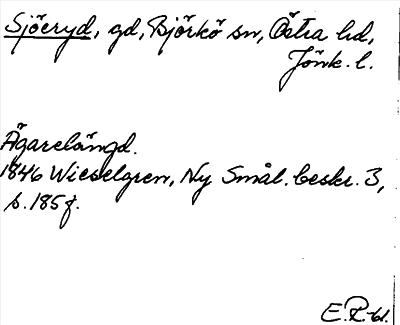 Sjöeryd, gd, Björkö sn, Östra hd,
Jönk. l.
Ägarelängd.
1846 Wieselgren, Ny Smål. beskr. 3,
s. 185 f.
E.R.-61.